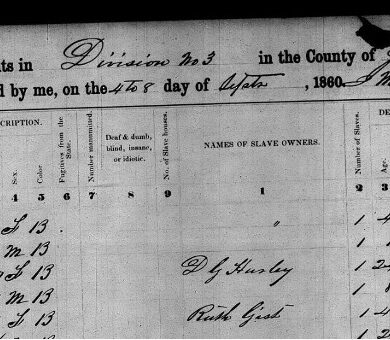 nts in Division No 3 in the County of
d by me, on the 4 to 8 day of Septr , 1860.
CRIPTION.
Sex.
Color.
Fugitives from the State.
Number manumitted.
Deaf & dumb, blind, insane, or idiotic.
No. of Slave houses.
NAMES OF SLAVE OWNERS.
Number of Slaves.
DE
Age.
4 5 6 7 8 9 1 2 3
f B " 1 4
m B 1
f B D G Husley 1 2
m B 1
f B Ruth Gist 1 4
m B 1 2